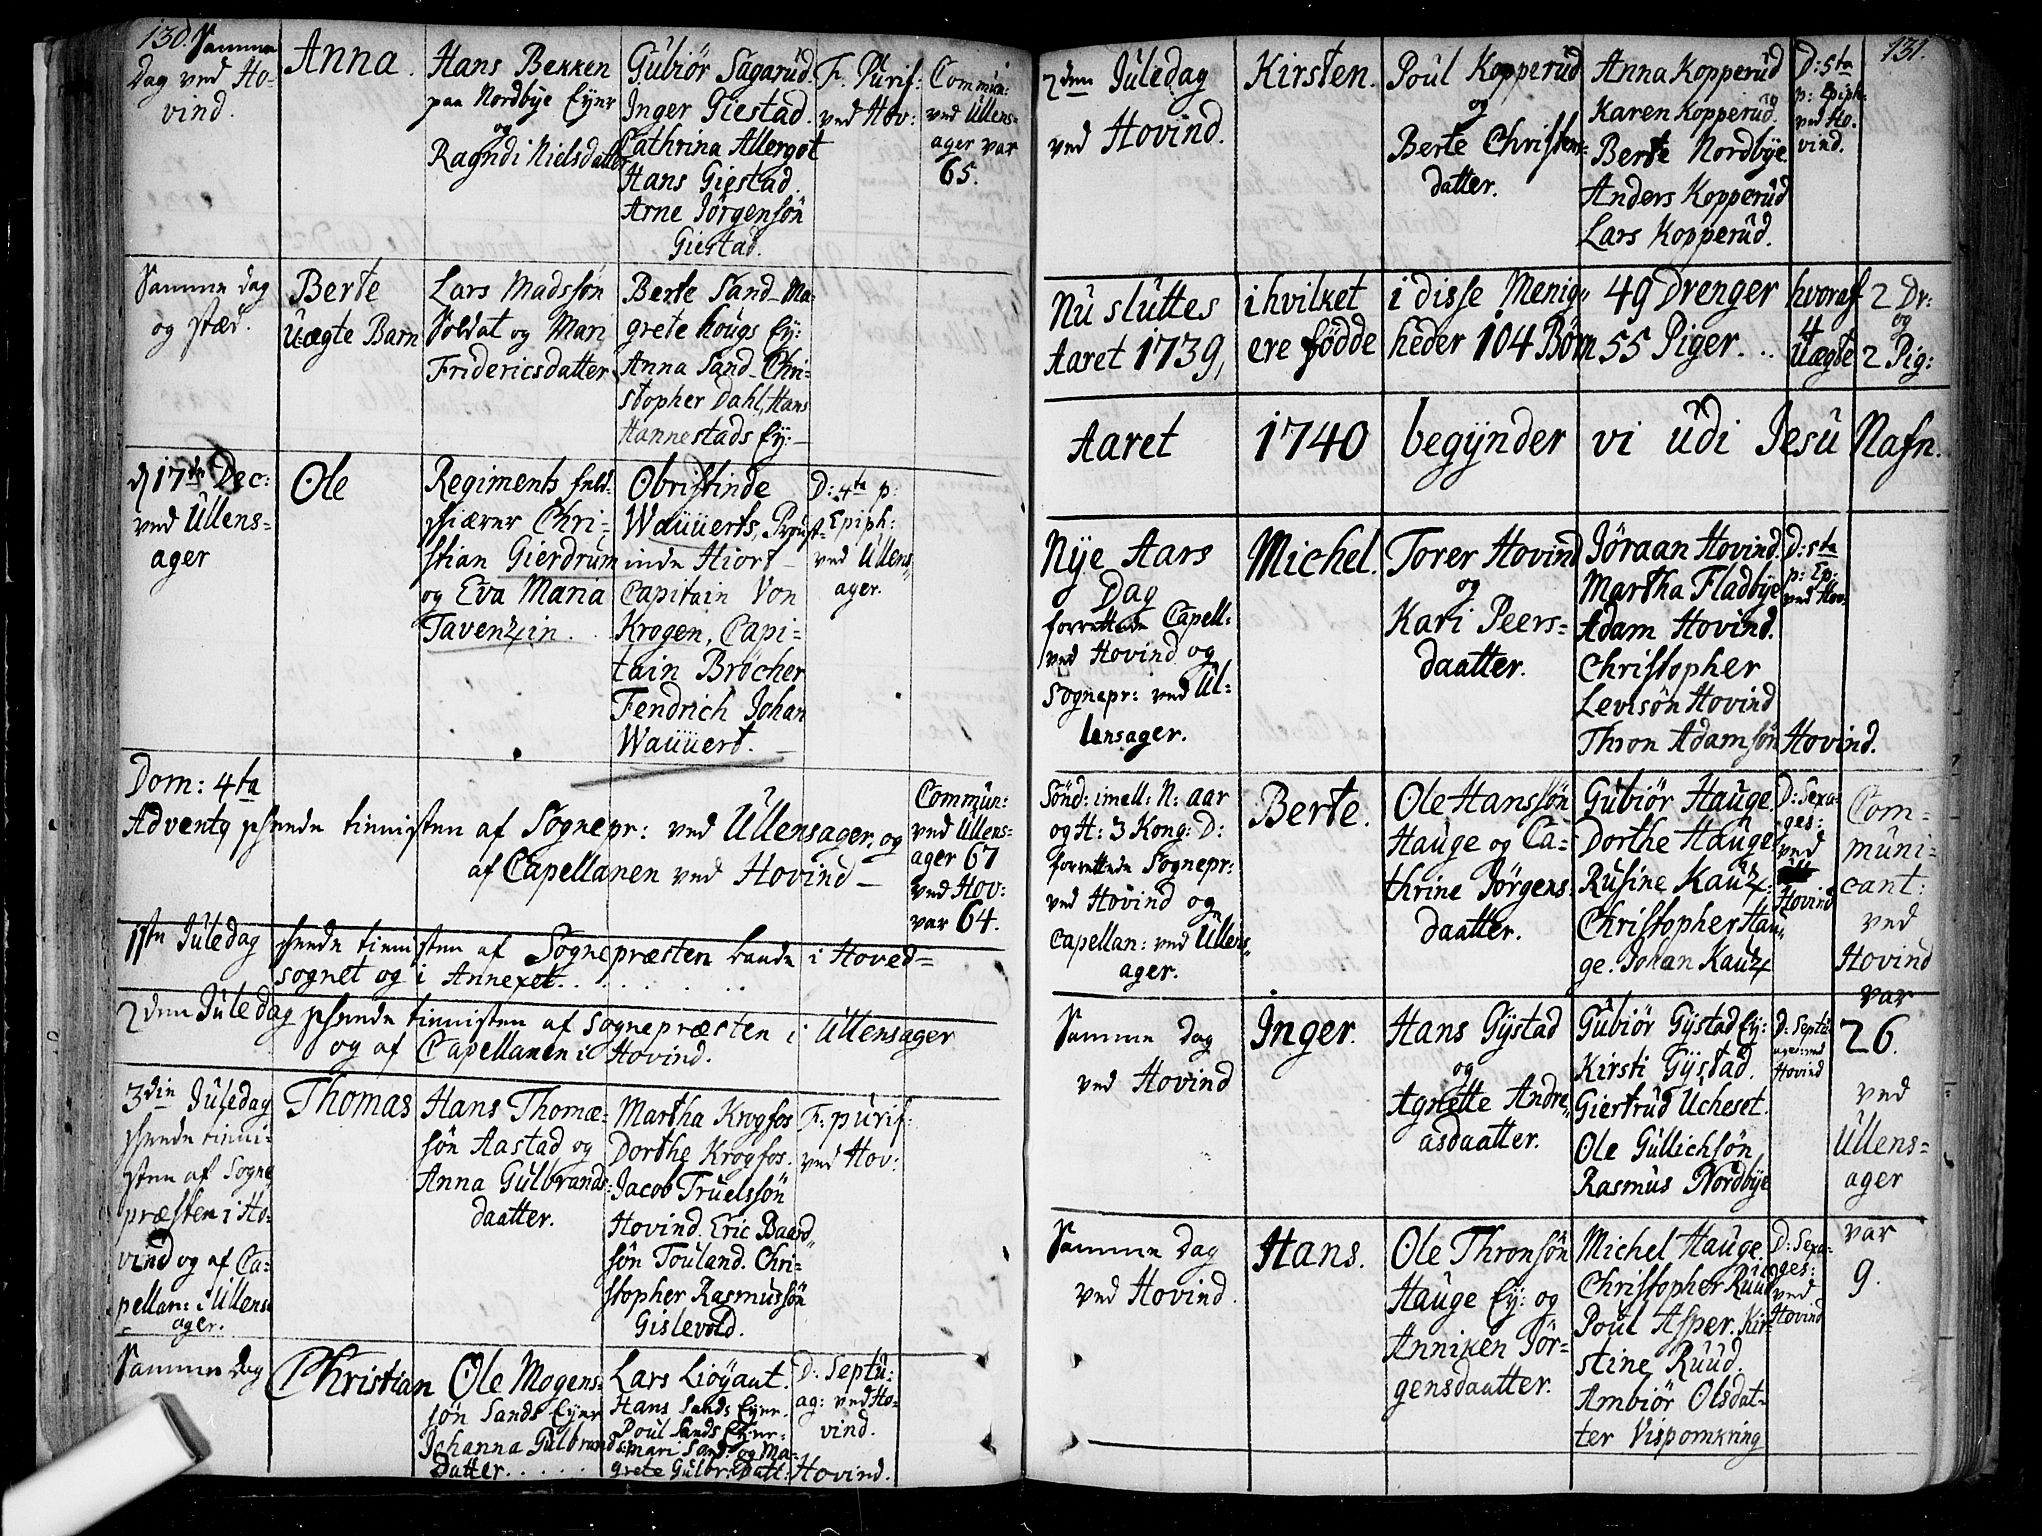 130. Samme
Dag ved Ho-
vind.
Anna.
Hans Bekken
paa Nordbye Eyer
og
Ragndi Nielsdatter
Gubiör Sagarud.
Inger Giestad.
Cathrina Allergot
Hans Giestad.
Arne Jörgensön
Giestad.
F. Purif:
ved Hov:
Commun:
ved Ullens-
ager var
65.
Samme dag
og stæd.
Berte
Uægte Barn
Lars Madssön
Soldat og Mari
Fridericsdatter
Berte Sand_ Ma-
grete hougs Ey:
Anna Sand_ Chri-
stopher Dahl, Hans
Hannestads Ey:
17de Dec:
ved Ullens-
ager
Ole
Regiments feld-
skiærer Chri-
stian Gierdrum
og Eva Maria
Tavenzin.
Obristinde
Wauuerts, Proust-
inde Hiort
Capitain Von
Krogen, Capi-
tain Bröcher
Fendrich Johan
Wauuert.
D: 4ta p:
Epiph:
ved Ullens-
ager.
Dom: 4ta
Advent skeede tienisten af Sognepr: ved Ullensager, og
af Capellanen ved Hovind
Commun:
ved Ullens-
ager 67
ved Hov:
var 64.
1ste Juledag skeede tienisten af Sognepræsten baade i Hoved-
sognet og i Annexet.
2den Juledag skeede tienisten af Sognepræsten i Ullensager
og af Capellanen i Hovind.
3die Juledag
skeede tieni-
sten af Sogne
præsten i Ho-
vind og af Ca-
pellan: i Ullens-
ager.
Thomas
Hans Thomæ-
sön Aastad og
Anna Gulbrands-
daatter.
Martha Krogfos
Dorthe Krogfos.
Jacob Truelssön
Hovind. Eric Baard-
sön Touland. Chri-
stopher Rasmussön
Gislevold.
F: purif:
ved Hov:
Samme Dag
Christian
Ole Mogens-
sön Sands Eyer
Johanna Gulbrands-
datter
Lars Liöyaut.
Hans Sands Eyer.
Poul Sands Eyer-
Mari Sand og Ma-
grete Gulbr: Datt:
D: Septu-
ag: ved Ho-
vind.
Hovind.
131.
2den Juledag
ved Hovind.
Kirsten.
Poul Kopperud
og
Berte Christens-
datter.
Anna Kopperud
Karen Kopperud.
Berte Nordbye
Anders Kopperud
Lars Kopperud.
D: 5ta
p: Epiph:
ved Ho-
vind.
Nu sluttes i hvilket i disse Menig- 49 Drenger hvoraf 2 Dr:
og
Aaret 1739, ere födde heder 104 Börn 55 Piger. .. 4 Uægte 2 Pig:
Aaret 1740 begÿnder vi udi Jesu Nafn.
Nÿe Aars
Dag
forrettede Capell:
ved Hovind og
Sognepr: ved Ul-
lensager.
Michel.
Torer Hovind
og
Kari Peers-
daatter.
Jöraan Hovind.
Martha Fladbye
Adam Hovind.
Christopher
Levisön Hovind
Thron Adamsön Hovind.
D: 5ta
p: Ep:
ved Hov:
Sönd: imell: N: aar
og H: 3 Kong: D:
forrettede Sognepr:
ved Hovind og
Capellan: ved Ullens-
ager.
Berte.
Ole Hanssön
Hauge og Ca-
thrine Jörgens-
daatter.
Gubiör Hauge
Dorthe Hauge
Rusine Kautz:
Christopher Hau-
ge. Johan Kautz
D: Sexa-
ges:
ved
Hovind
Com-
muni-
cant:
ved
Hovind
var
26.
ved
Ullens-
ager
var
9.
Samme Dag
ved Hovind
Inger.
Hans Gÿstad
og
Agnette Andre-
asdaatter.
Gubiör Gÿstad Eÿ:
Kirsti Gÿstad.
Giestrud Ucheset.
Ole Gullichsön
Rasmus Nordbÿe
D: Septu-
ages: ved
Hovind
Samme Dag
ved Hovind.
Hans.
Ole Thronsön
Hauge Eÿ: og
Anniken Jör-
gensdaatter.
Michel Hauge.
Christopher Ruud
Poul Asper. Kir-
stine Ruud.
Ambiör Olsdat-
ter Vispomkring
D: Sexa-
ges:
ved
Hovind